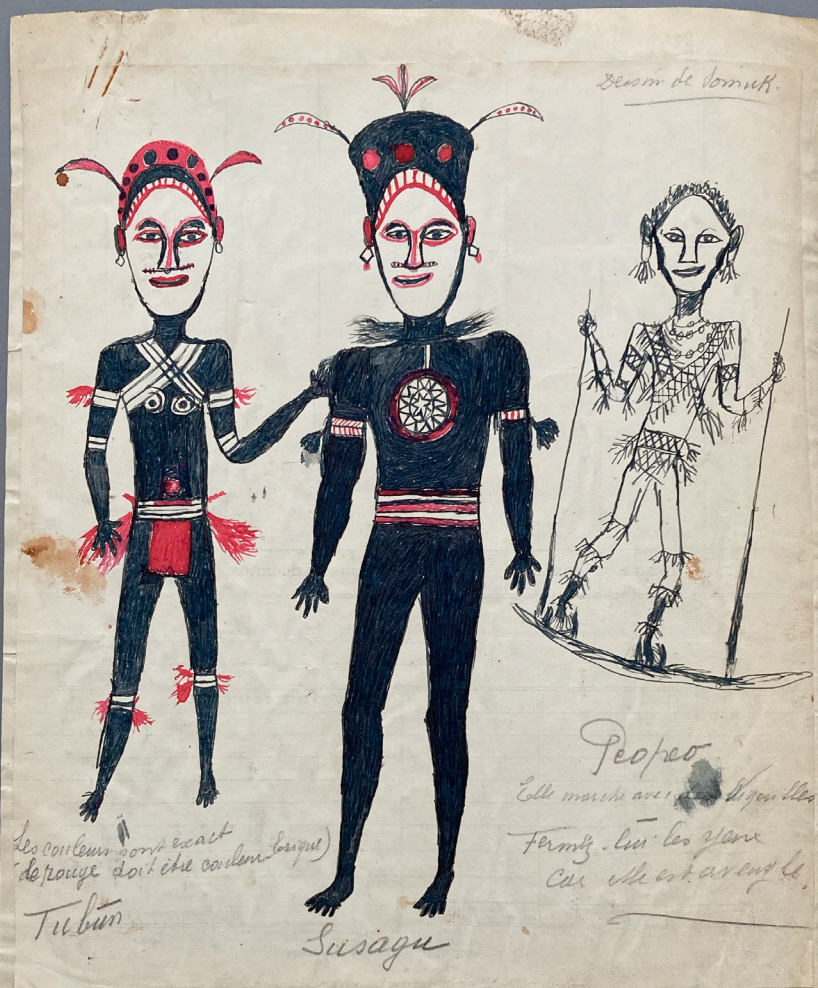 Dessin de Somuk.
Les couleurs sont exact
(de rouge doit être couleur brique)
Tubun
Susagu
Peopeo
Elle marche avec béquilles
Fermez-lui les yeux
Car elle est aveugle.